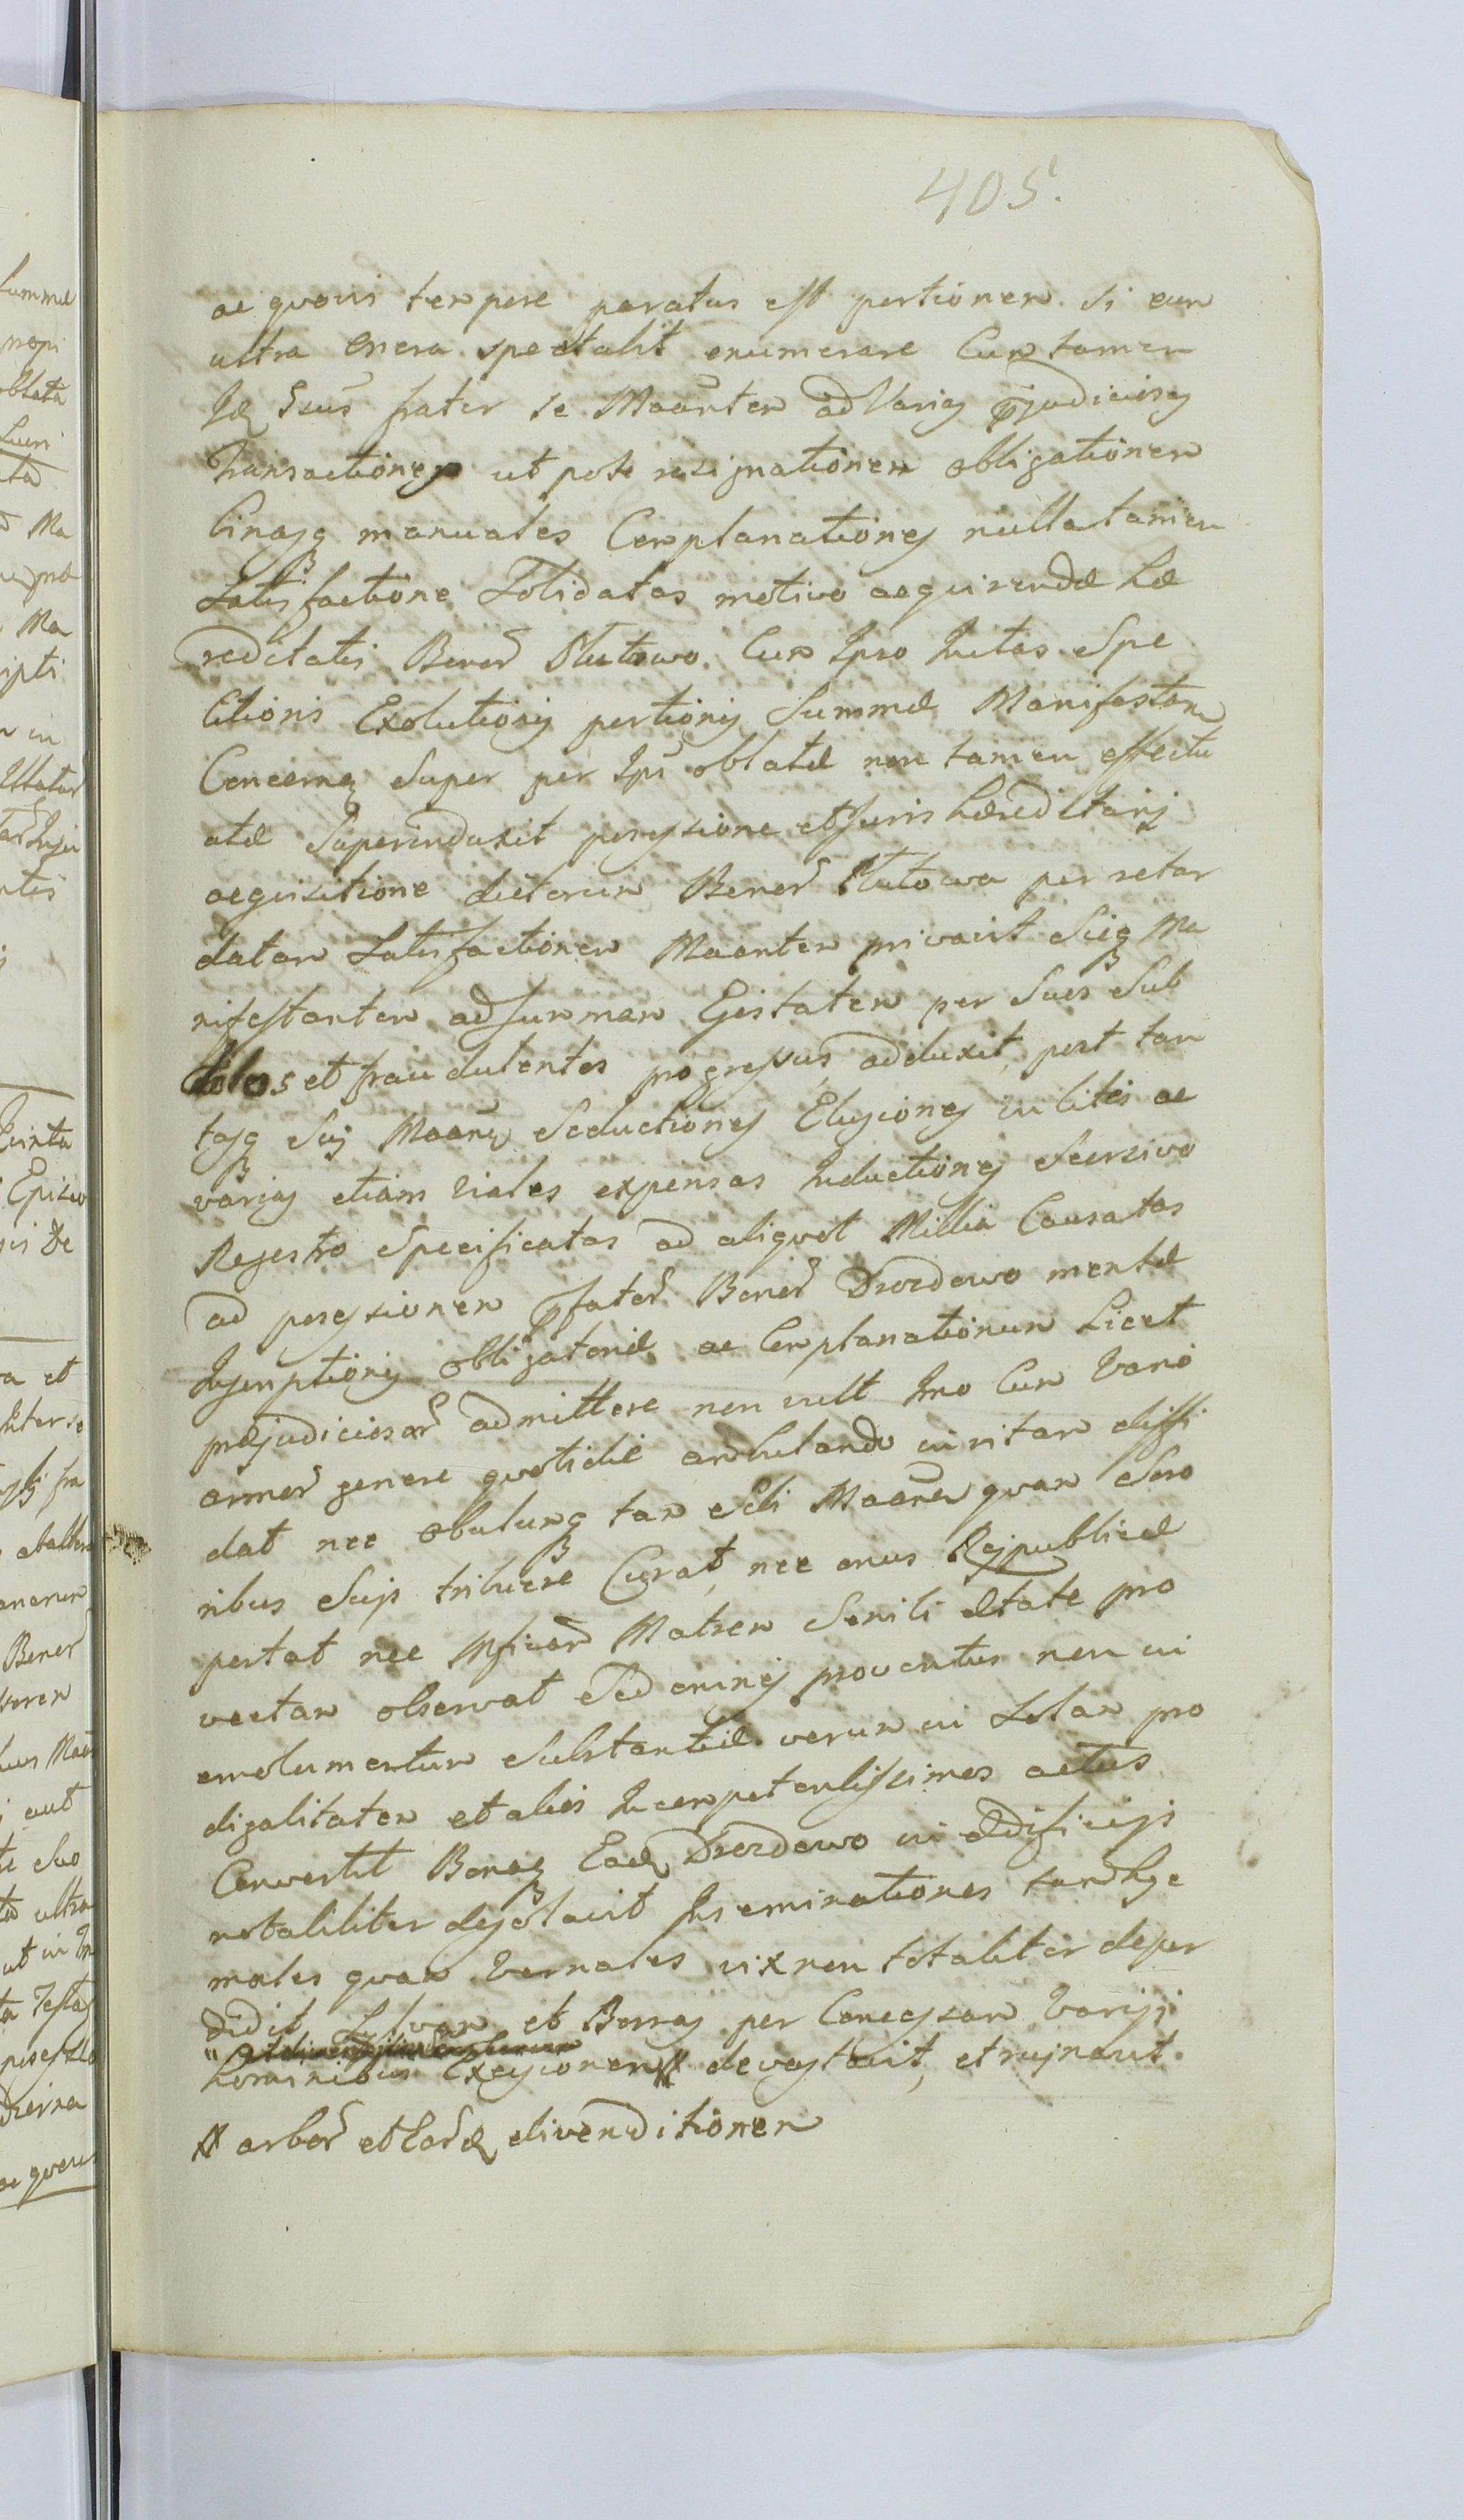 405.
ac quovis tempore paratus est portionem si eum
ultra onera spectabit enumerare Cum tamen
Idem Suus frater se Maanten ad Varias pjudiciosas
transactiones ut pote resignationem obligationem
binasq manuales Complanationes nulla tamen
Satisfactione Solidatas motivo acquirendæ hæ
reditatis Bonor Plutowo Cum Ipso Initas Spe
Exolutionis portionis Summæ Manifestan
Concernen Super per Ipsi oblatæ non tamen effectu
atæ Superinduxit possessione et Juris hæreditarij
acquisitione dictorum Bonor Plutowa per retar
datam Satisfactionem Maanten privavit Sicq Ma
nifestantem ad summam Egestatem per Suos Sub
dolos et fraudulentes progressus adduxit, post tan
tasq Sui Maantis Seductiones Elusiones in lites ac
varias etiam viales expensas Inductiones Seorsivo
Regestro Specificatas ad aliquot Millia Causatas
ad possessionem pfator Bonor Drozdowo mentæ
Inscriptionis obligatoriæ ac Complanationum Licet
præjudiciosar admittere non vult Imo Cum Vario
armor genere quotidie ambulando invitam diffi
dat nec obulumq tam Sibi Maanti quam Soro
ribus Suis tribuere Curat, nec onus Reipublicæ
portat nec Msficam Matrem Senili ætate pro
vectam observat Sed omnes proventus non in
emolumentum Substantiæ verum in Solam pro
digalitatem et alios Incompetentissimos actus
Convertit Bonaq Eadem Drozdowo in ædificijs
notabiliter desolavit Inseminationes tam Hye
males quam Vernales vix non totaliter deper
didit Sylvam et Borras per Concessam Varijs
hominibus Excisionem # devastavit, et rujnavit.
# arbor et Earde divenditionem